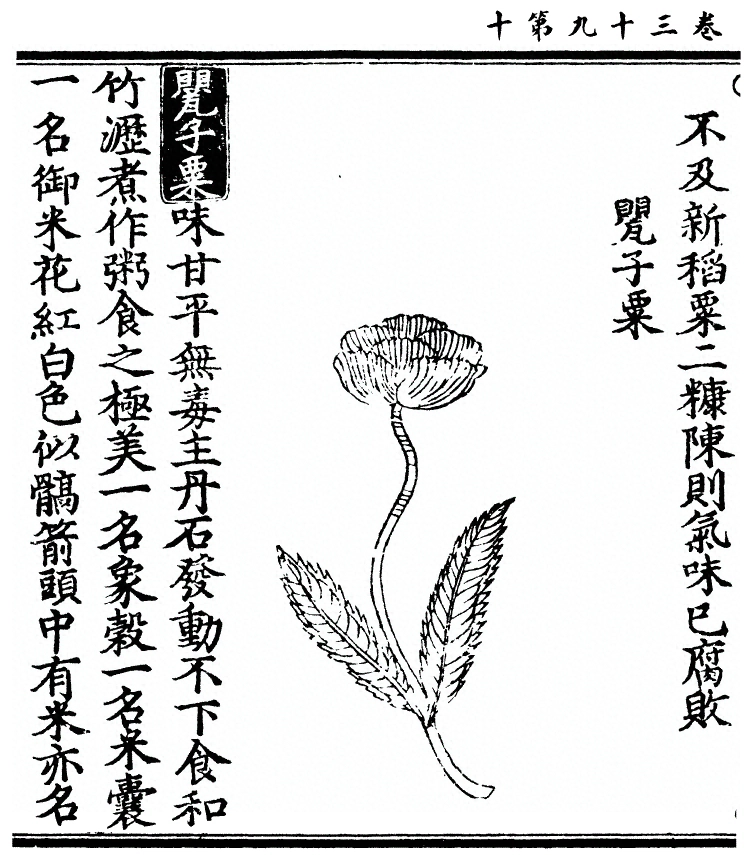 十第九十三卷
不及新稻粟二糠陳則氣味已腐敗
甖子粟
甖子粟味甘平無毒主丹石發動不下食和
竹瀝煮作粥食之極美一名象穀一名米囊
一名御米花紅白色似髇箭頭中有米亦名